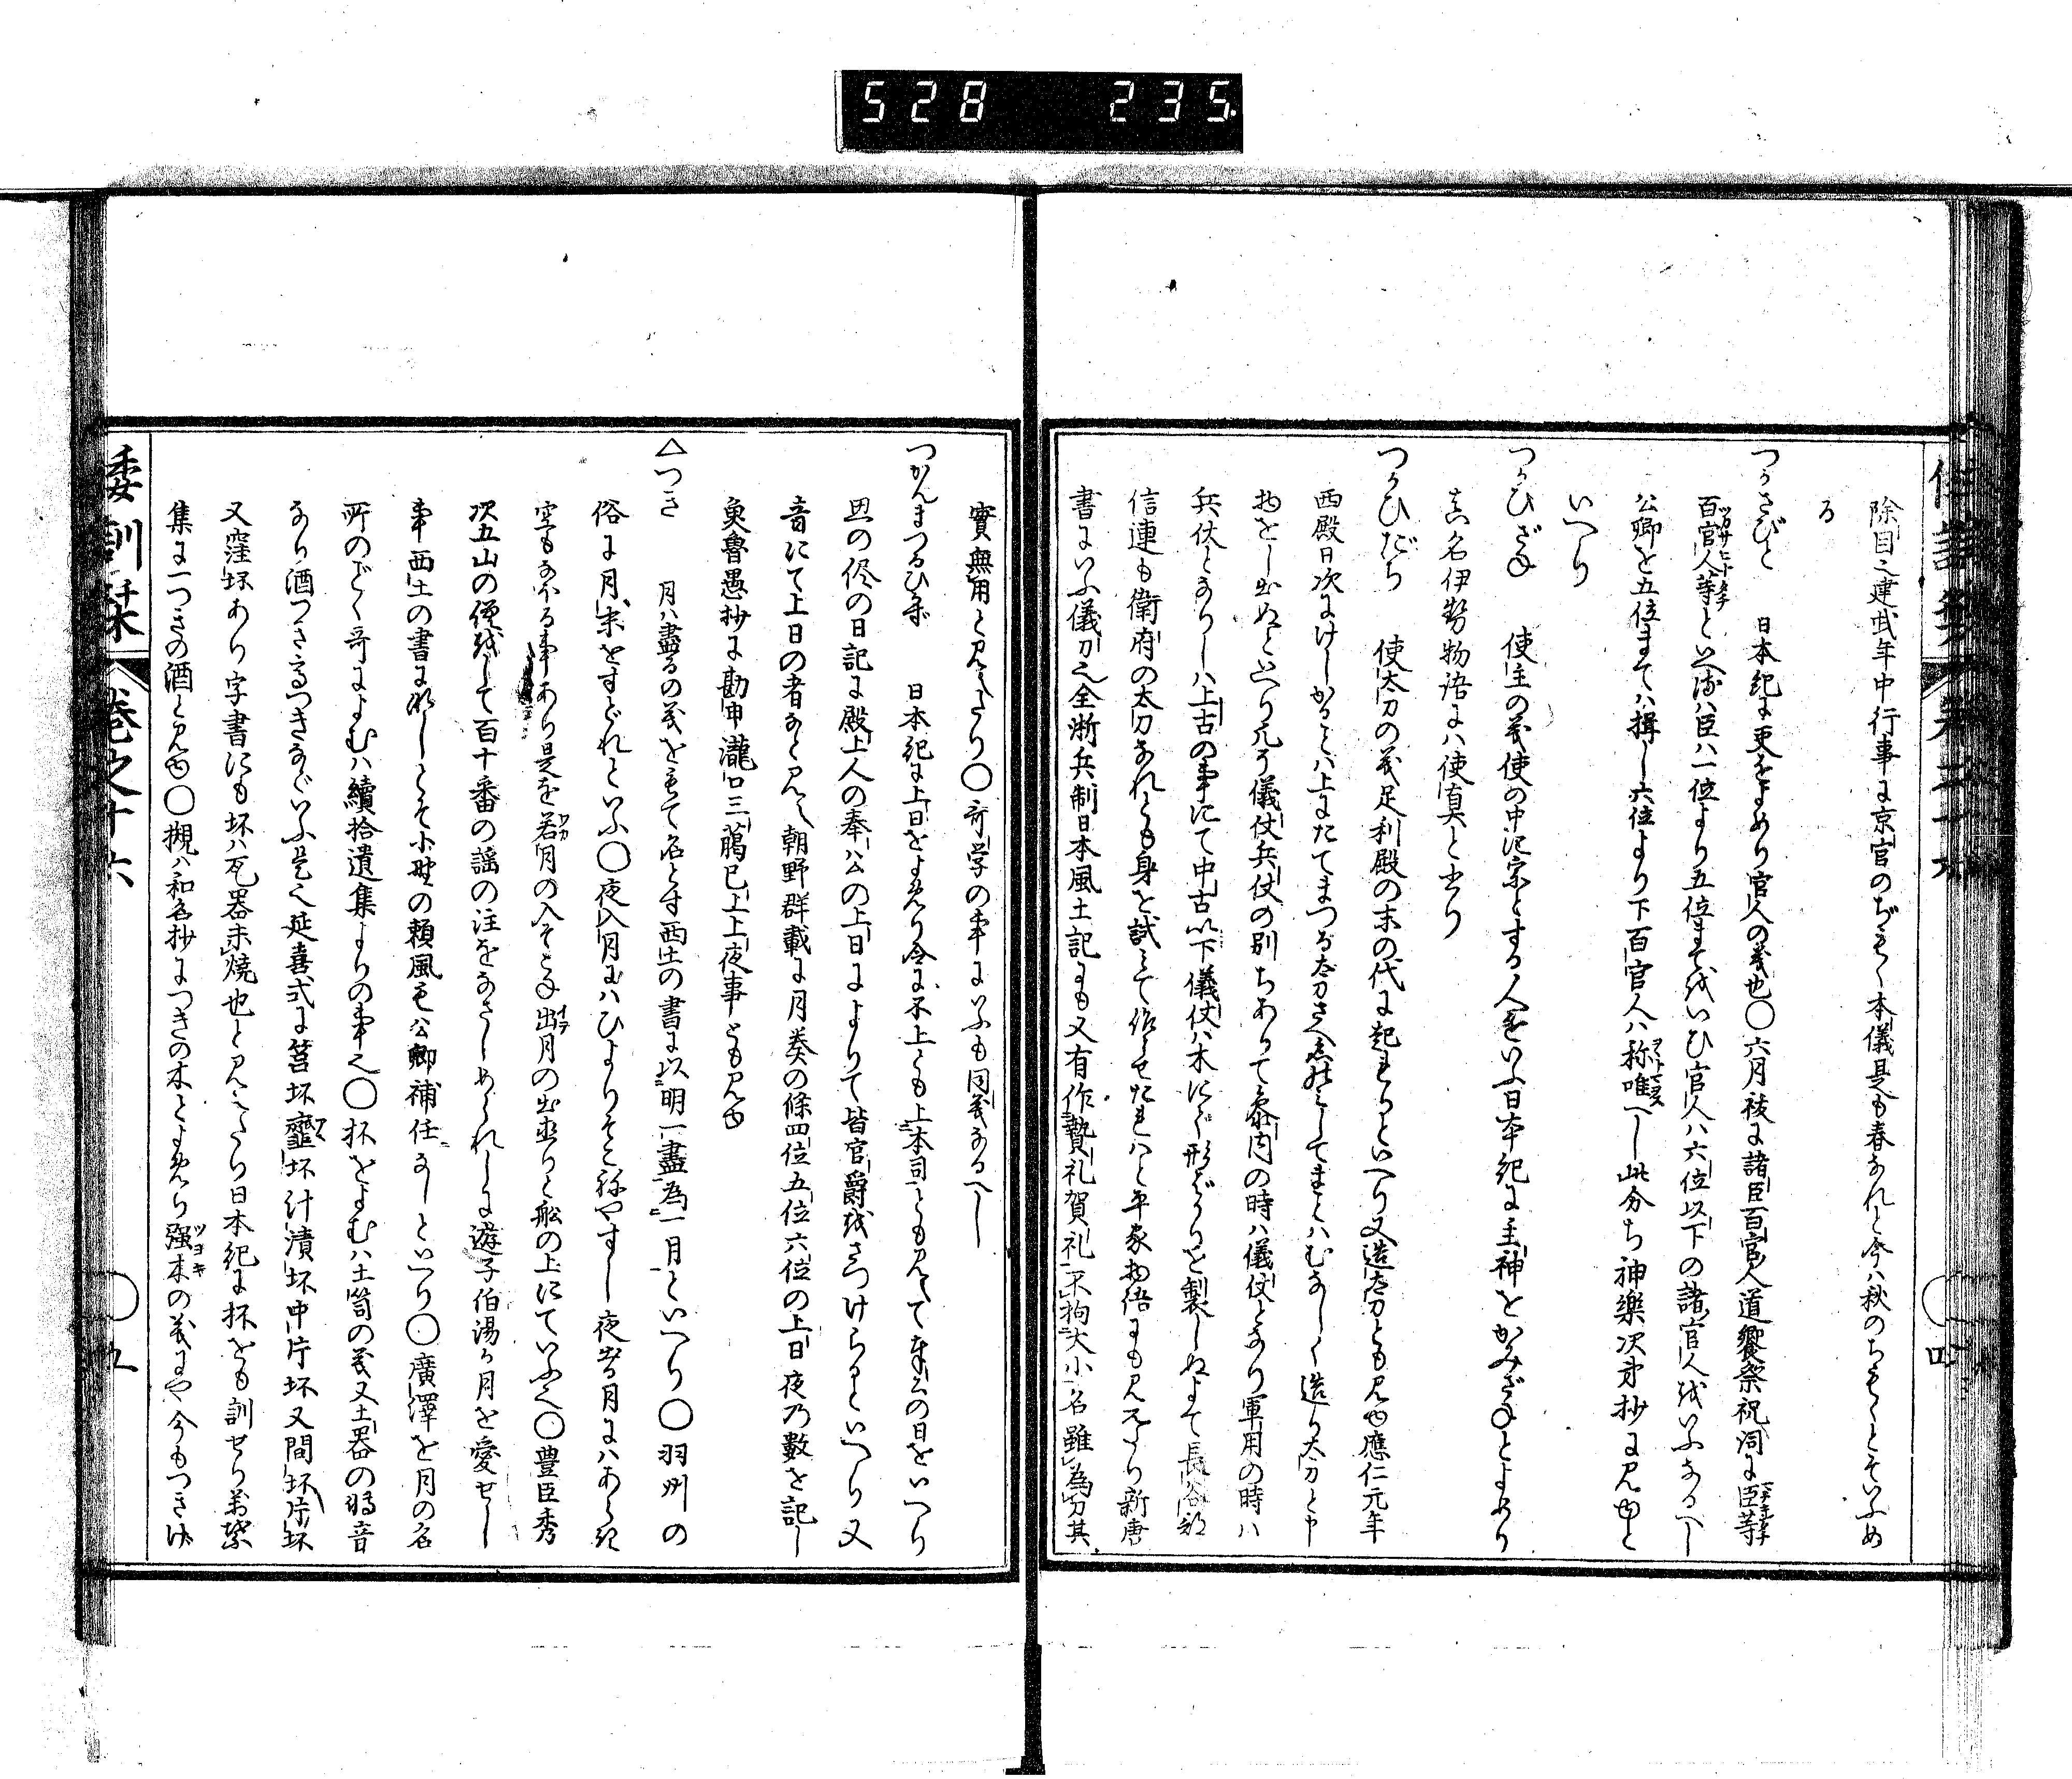 528 235.
除目之建武年中行事に京官のぢもく本儀是も春なれと今ハ秋のちもくとそいふめ
る
つかさびと 日本紀に吏をよめり官人の義也〇六月祓に諸臣百官人道饗祭祝詞に臣等
百官人等といへるハ臣ハ一位より五位まてをいひ官人ハ六位以下の諸官人をいふなるへし
公卿と五位まてハ揖し六位より下百官人ハ称唯へし此分ち神樂次第抄に見ゆと
いへり
つかひざね 使主の義使の中に宗とする人をいふ日本紀に主神をかみざねとよめり
真名伊勢物语にハ使真と書り
つかひだち 使太刀の義足利殿の末の代に起れりといへり又造太刀とも見ゆ應仁元年
西殿日次にけしかることハ上にたてまつる太刀さへ
物をし出ぬといへり元より儀仗兵仗の別ちありて参内の時ハ儀仗となり軍用の時ハ
兵仗となりしハ上古の事にて中古以下儀仗ハ木にて形ばかりを製しぬよて長谷部
信連も衛府の太刀なれとも身を試みて作らせたれハと平家物语にも見えたり新唐
書にいふ儀刀之全淅兵制日本風土記にも又有作贄礼賀礼不拘大小名雖為刀其
實無用と見えたり〇哥学の事にいふも同義なるへし
つかんまつるひ 日本紀に上日をよめり令に不上とも上本司とも見えて奉公の日をいへり
思の侭の日記に殿上人の奉公の上日によりて皆官爵をさつけらるといへり又
音にて上日の者なと見え朝野群載に月奏の條四位五位六位の上日夜乃數を記し
魚魯愚抄に勘申瀧口三﨟已上上夜事とも見ゆ
△つき 月ハ盡るの義をもて名とす西土の書に以明一盡為一月といへり〇羽州の
俗に月末をすぐれといふ〇夜入月にハひよりそこねやすし夜出る月にハあらき
空もなほる事あり是を若月の入そこね出月の出直りと舩の上にていふ之〇豊臣秀
次五山の僧をして百十番の謡の注をなさしめられしに遊子伯湯か月を愛せし
事西土の書になしとそ小野の頼風も公卿補任になしといへり〇廣澤を月の名
所のごとく哥によむハ續拾遺集よりの事之〇杯をよむハ土筒の義又土器の略音
なり酒つきたかつきなどいふ是之延喜式に筥坏韲坏汁漬坏中片坏又間坏片坏
又窪坏あり字書にも坏ハ瓦器未燒也と見えたり日本紀に杯をも訓せり万葉
集に一つきの酒と見ゆ〇槻ハ和名抄につきの木とよめり强木の義にや今もつきげ
倭訓栞 卷之十六 五